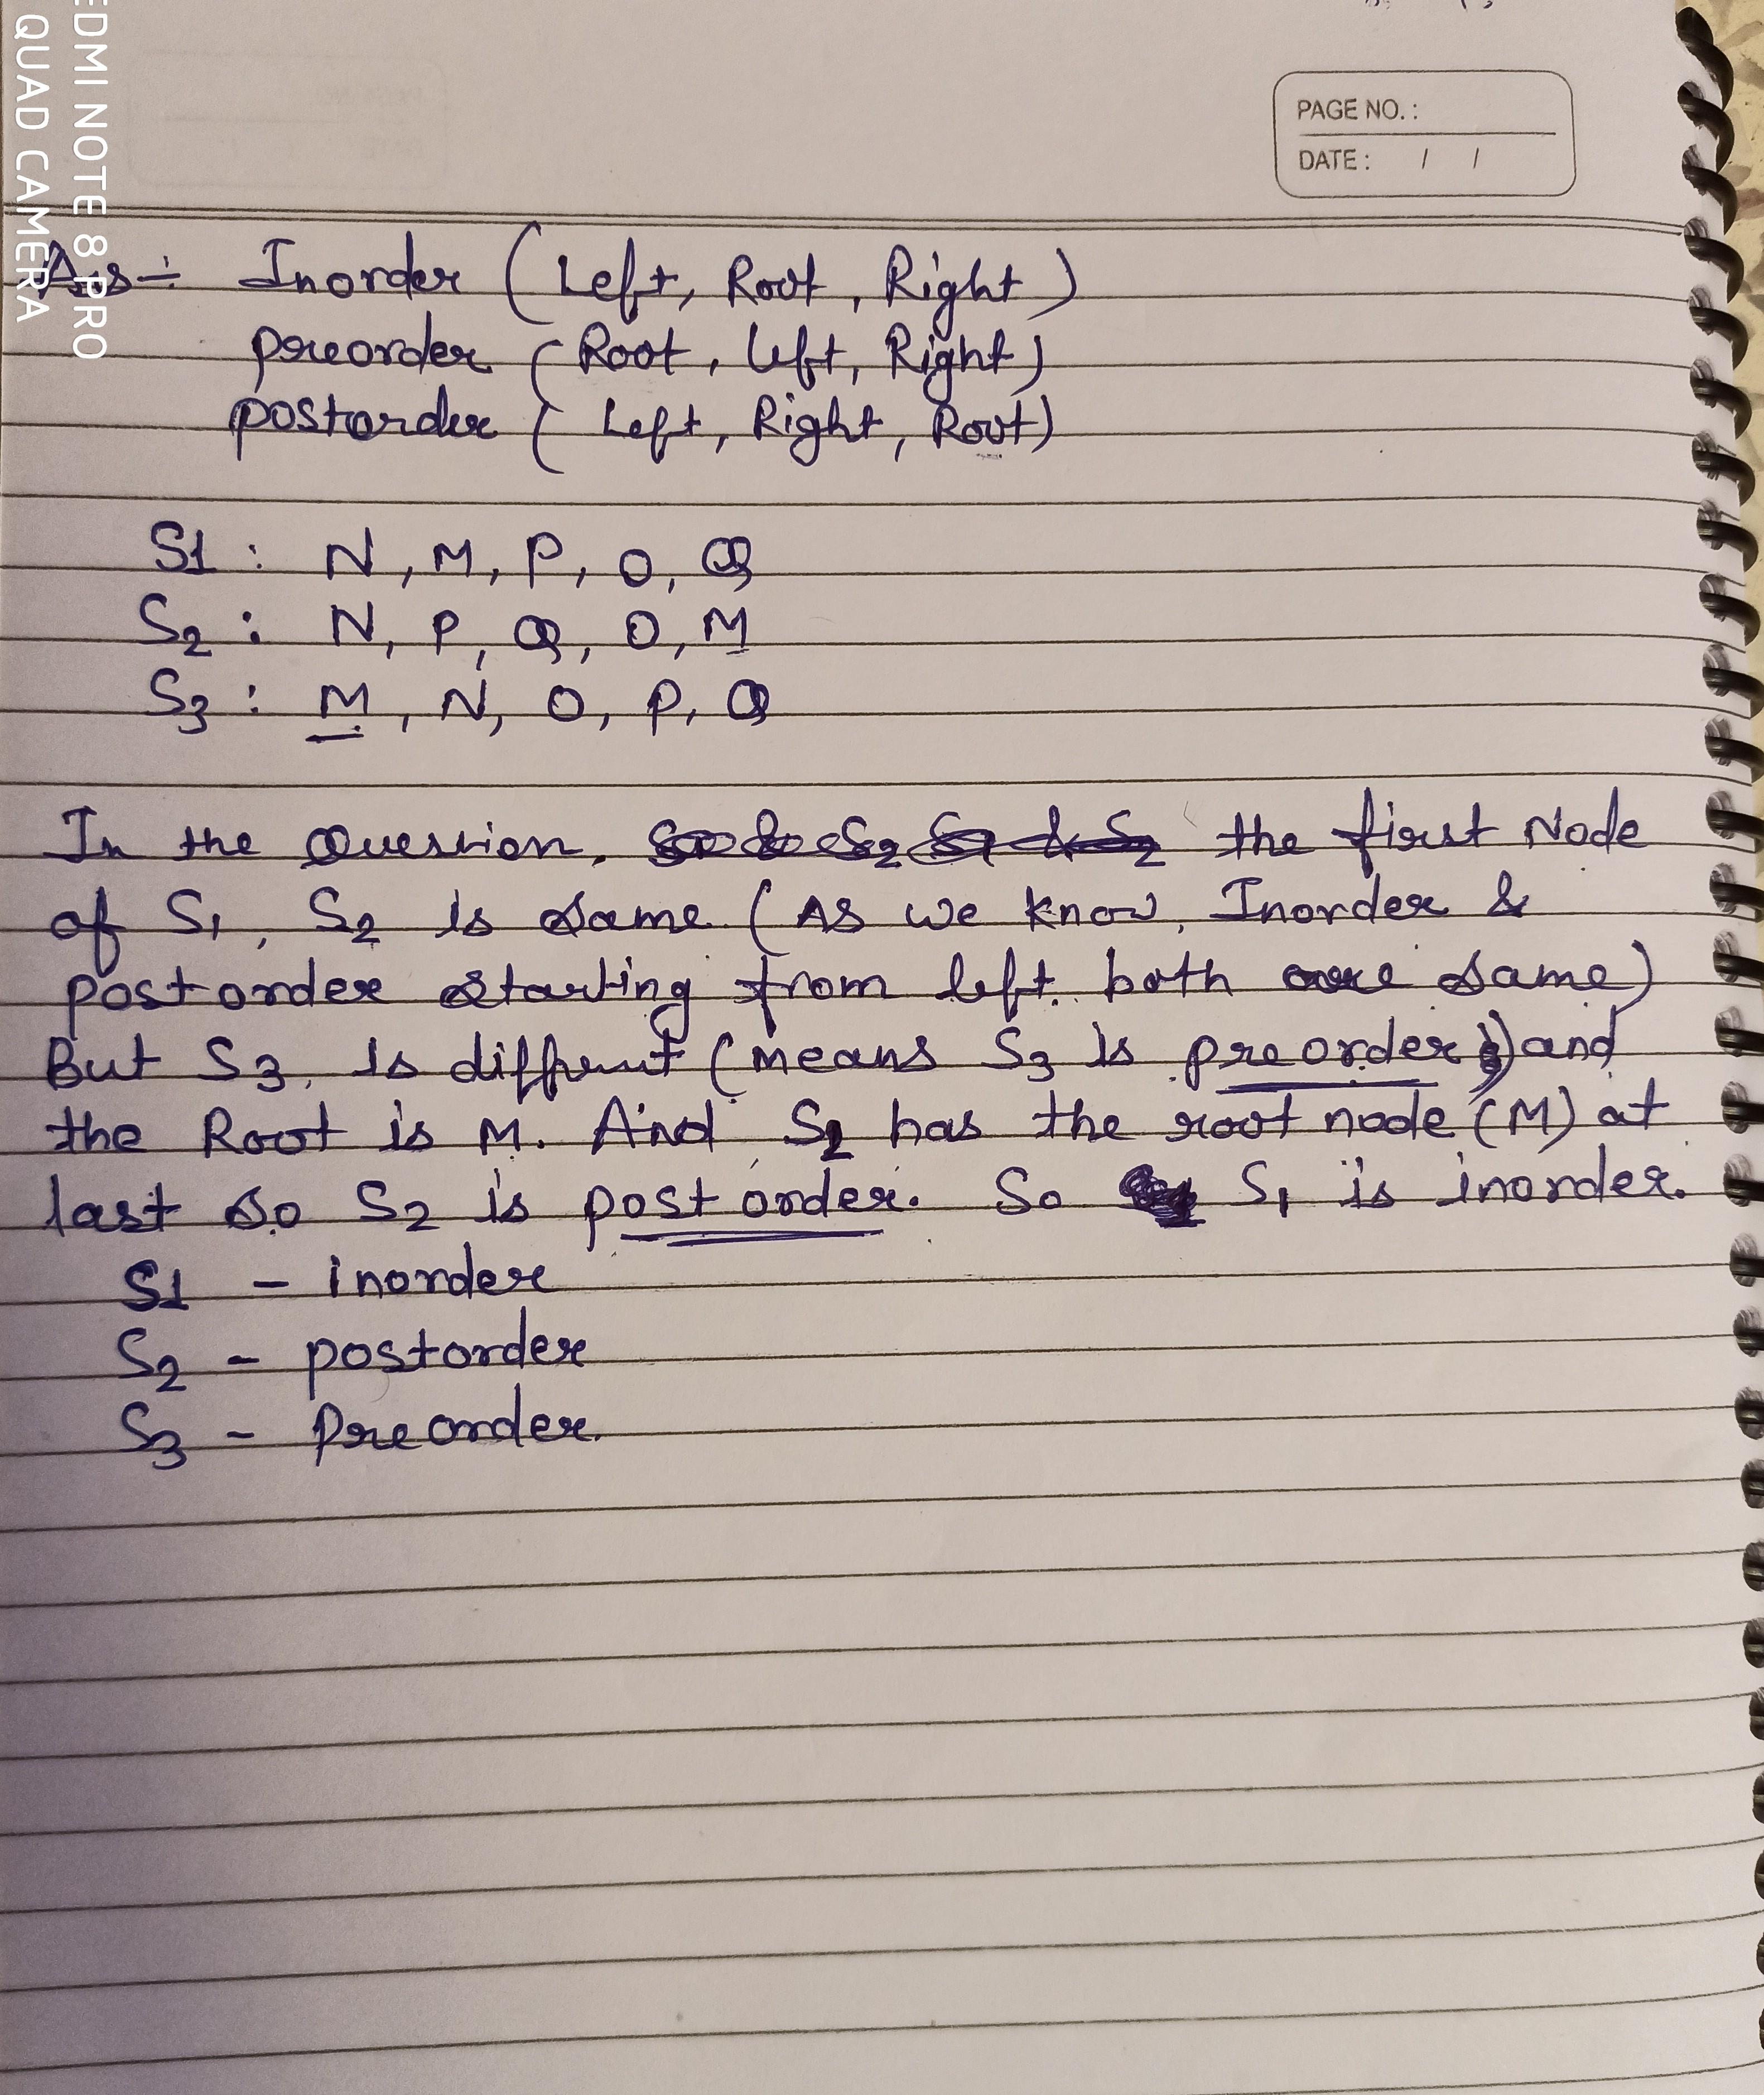 PAGE NO. :
DATE : / /
Ans :- Inorder ( Left, Root, Right )
preorder ( Root, left, Right )
postorder ( Left, Right, Root)
S1 : N, M, P, O, Q
S2 : N, P, Q, O, M
S3 : M, N, O, P, Q
In the Question, the first Node
of S1, S2 is same (As we know, Inorder &
postorder starting from left both are same)
But S3, is diffrent (means S3 is preorder) and
the Root is M. And S2 has the root node (M) at
last so S2 is post order. So S1 is inorder.
S1 - inorder
S2 - postorder
S3 - Preorder.
REDMI NOTE 8 PRO
QUAD CAMERA